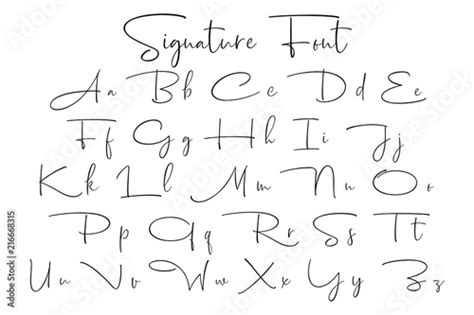 Signature Font
Aa Bb Cc Dd Ee
Ff Gg Hh Ii Jj
Kk Ll Mm Nn Oo
Pp Qq Rr Ss Tt
Uu Vv Ww Xx Yy Zz
Adobe Stock | #216668315